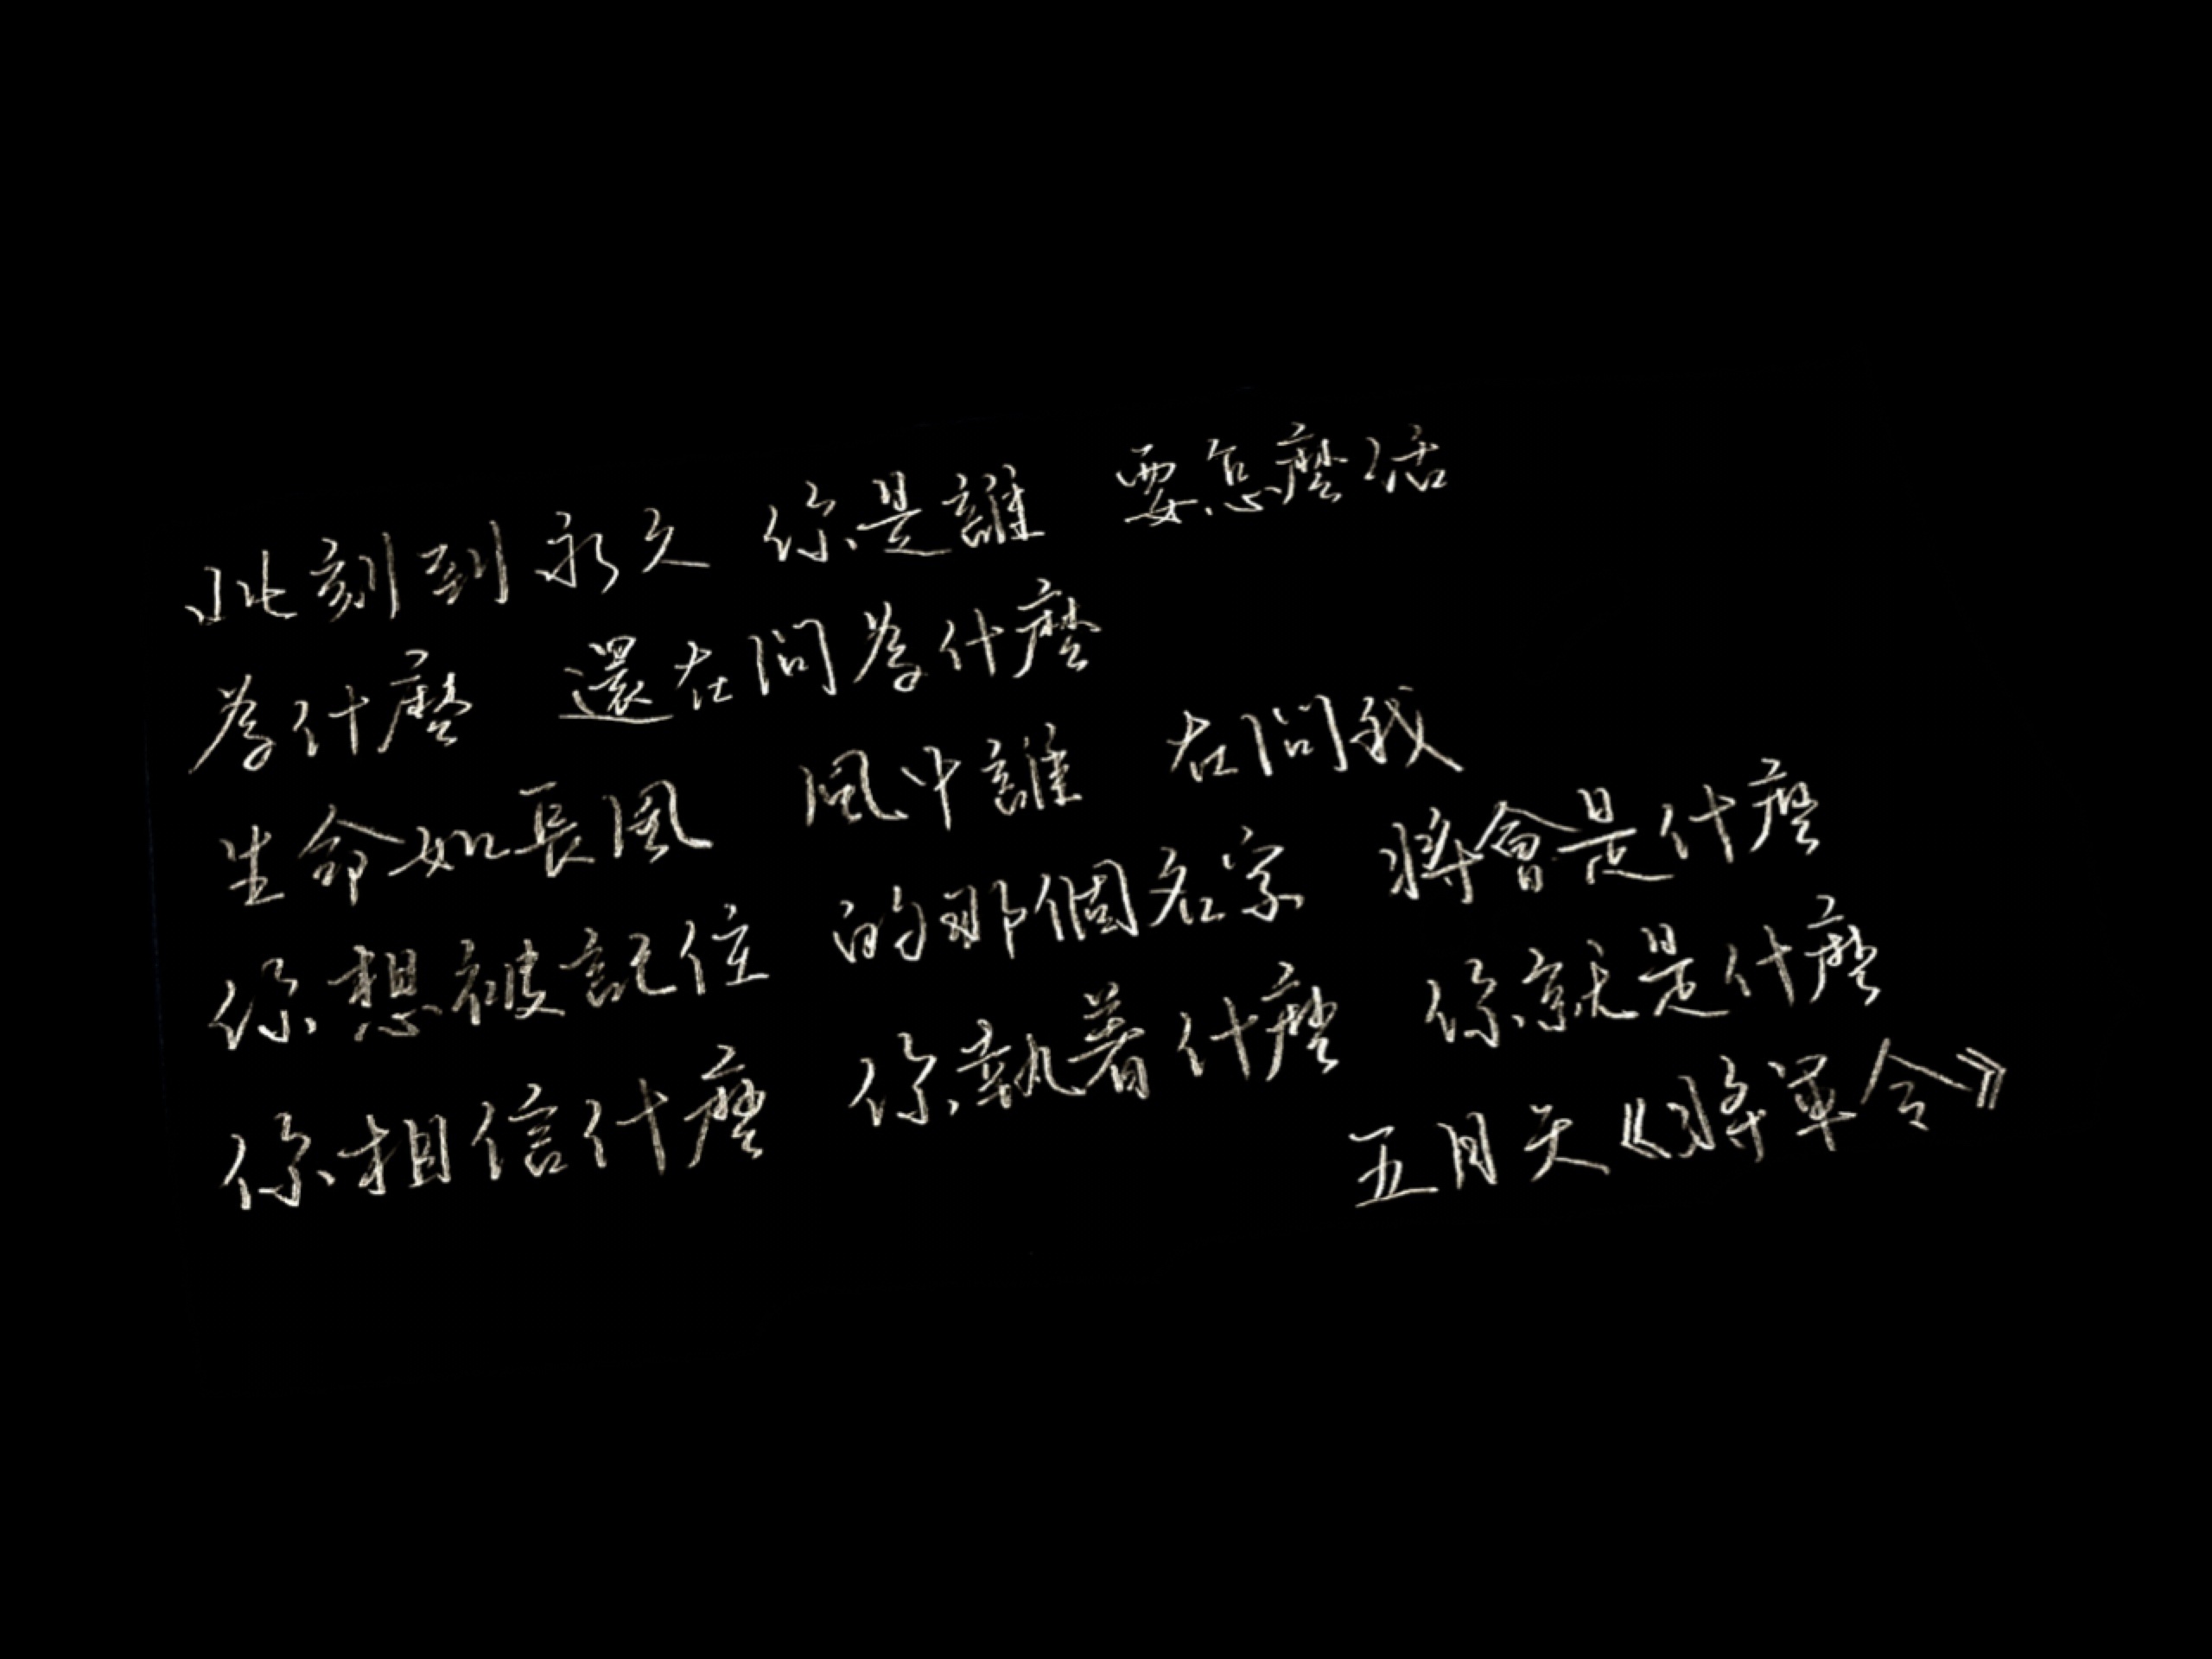 此刻到永久 你是誰 要怎麼活
為什麼 還在問為什麼
生命如長風 風中誰 在問我
你想被記住 的那個名字 將會是什麼
你相信什麼 你執著什麼 你就是什麼
五月天《將軍令》